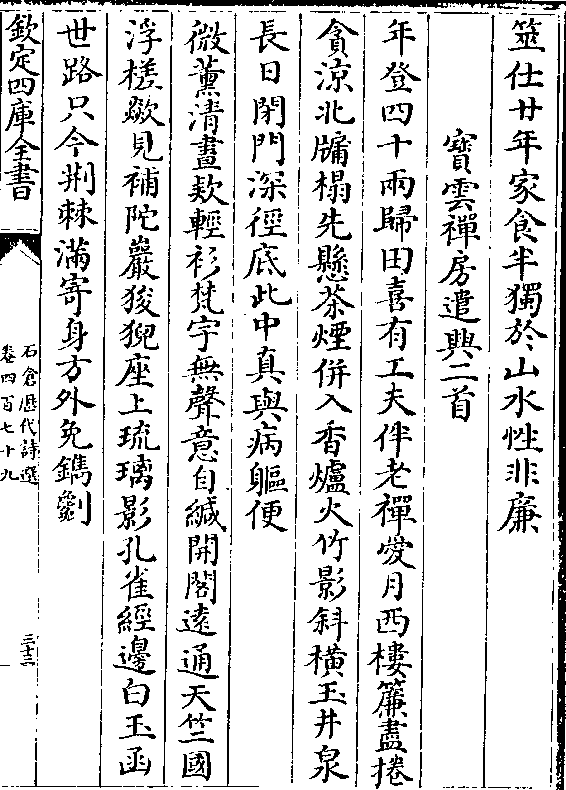 筮仕廿年家食半獨於山水性非廉
寳雲禪房遣興二首
年登四十兩歸田喜有工夫伴老禪愛月西樓簾盡捲
貪涼北牖榻先懸茶煙併入香爐火竹影斜横玉井泉
長日閉門深徑底此中真與病軀便
微薰清晝欵輕衫梵宇無聲意自緘開閣遠通天竺國
浮槎歘見補陀巖狻猊座上琉璃影孔雀經邊白玉函
世路只今荆棘滿寄身方外免鐫劖
欽定四庫全書
石倉歴代詩選
卷四百七十九
三十二